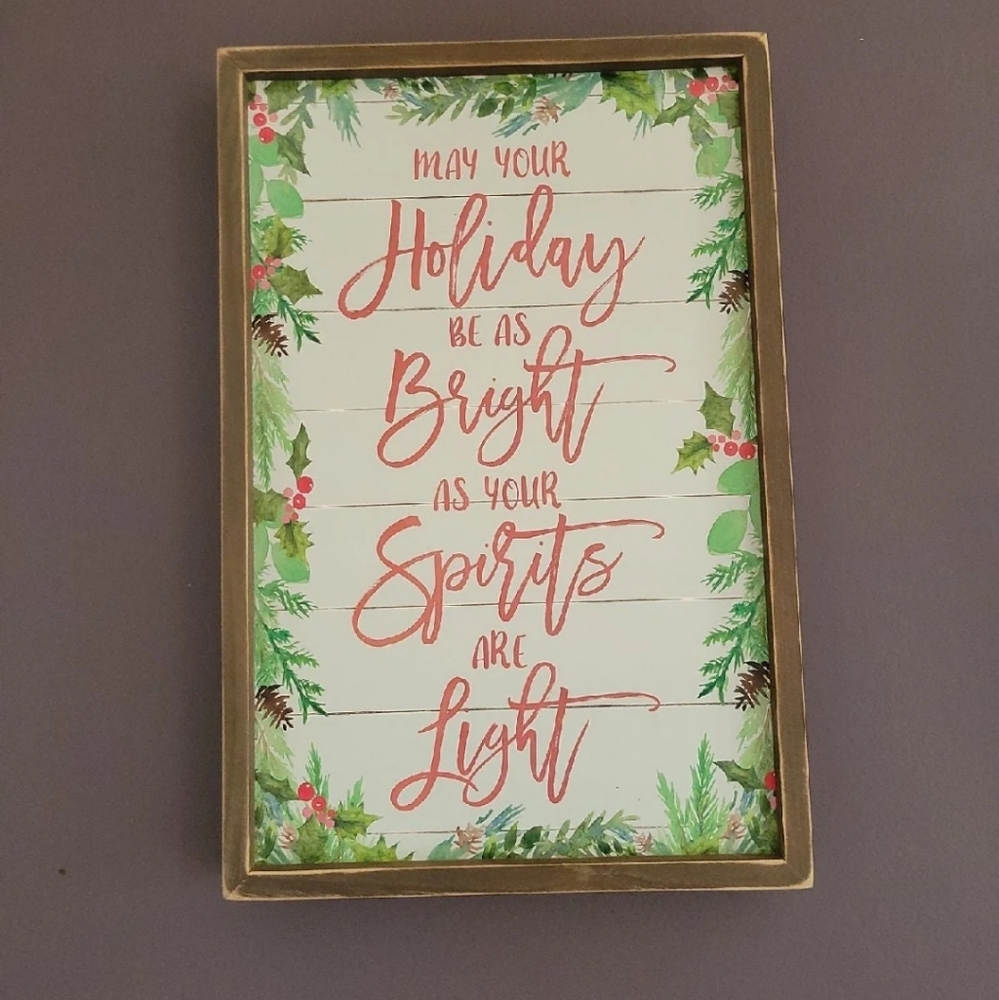 MAY YOUR
Holiday
BE AS
Bright
AS YOUR
Spirits
ARE
Light